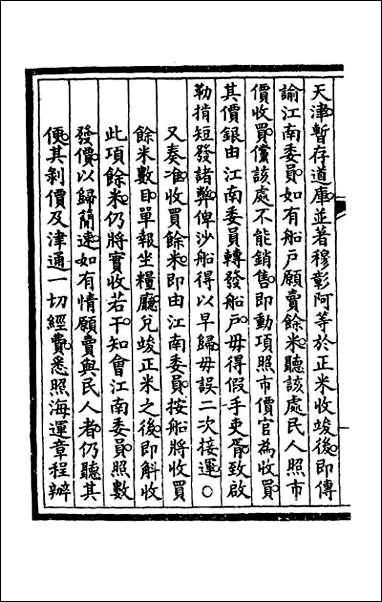 天津暫存道庫並著穆彰阿等於正米收竣後即傳
諭江南委員如有船戶願賣餘米聽該處民人照市
價收買儻該處不能銷售即動項照市價官為收買
其價銀由江南委員轉發船戶毋得假手吏胥致啟
勒掯短發諸弊俾沙船得以早歸毋誤二次接運○
又奏准收買餘米即由江南委員按船將收買
餘米數目單報坐糧廳兌竣正米之後即斛收
此項餘米仍將實收若干知會江南委員照數
發價以歸簡速如有情願賣與民人者仍聽其
便其剝價及津通一切經費悉照海運章程辦